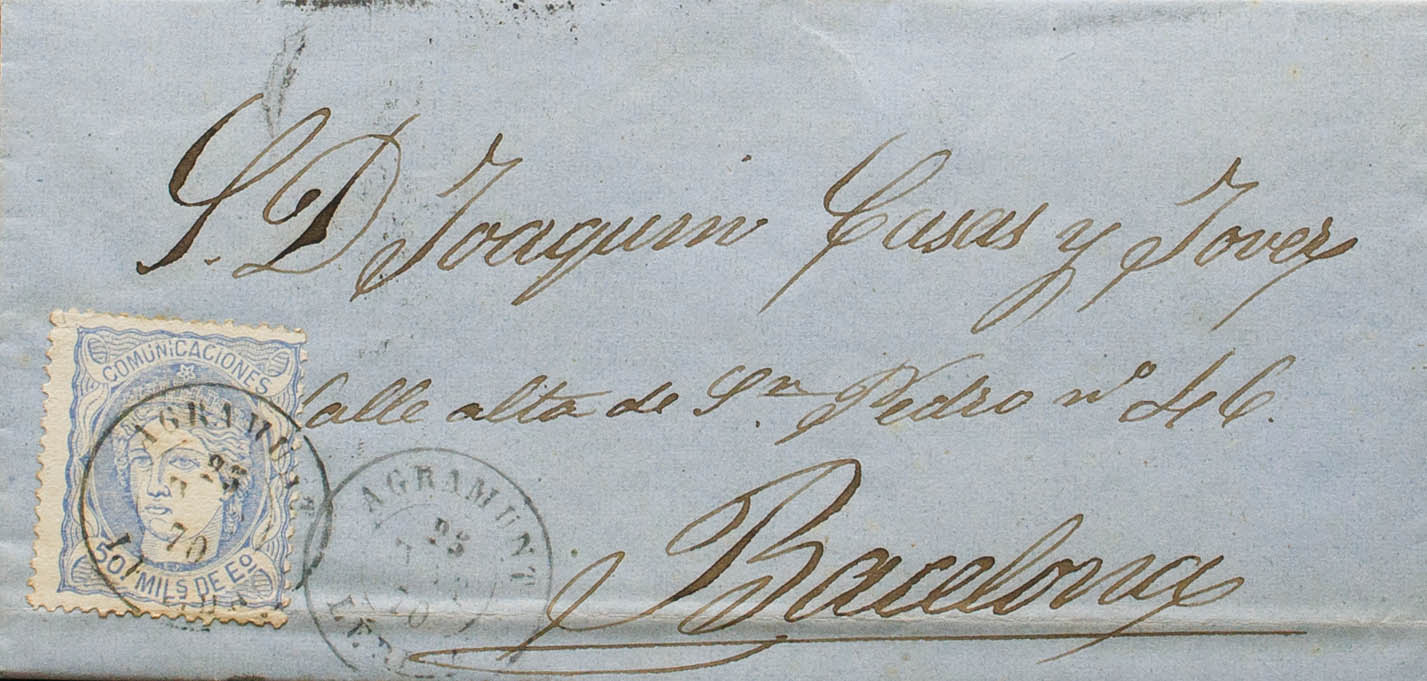 S. D Joaquim Casas y Jover
Calle alta de Sn Pedro nº 46.
Bacelona
COMUNICACIONES
50 MILS DE Eo
AGRAMUNT
70
AGRAMUNT
25
70